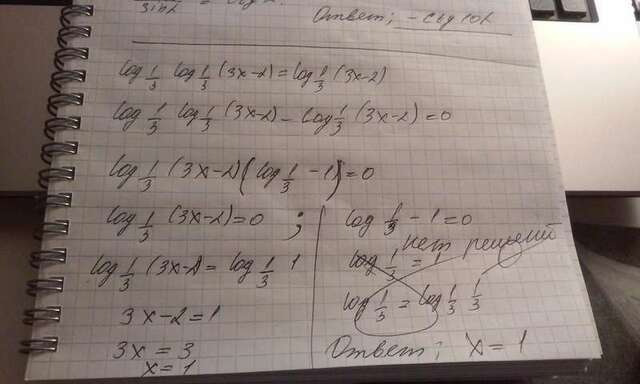 Ответ; -ctg 10α
log 1/3 log 1/3 (3x-2) = log 1/3 (3x-2)
log 1/3 log 1/3 (3x-2) - log 1/3 (3x-2) = 0
log 1/3 (3x-2)(log 1/3 - 1) = 0
log 1/3 (3x-2) = 0 ;
log 1/3 (3x-2) = log 1/3 1
3x-2 = 1
3x = 3
x = 1
log 1/3 - 1 = 0
нет решений
log 1/3 = 1
log 1/3 = log 1/3 1/3
Ответ; x = 1